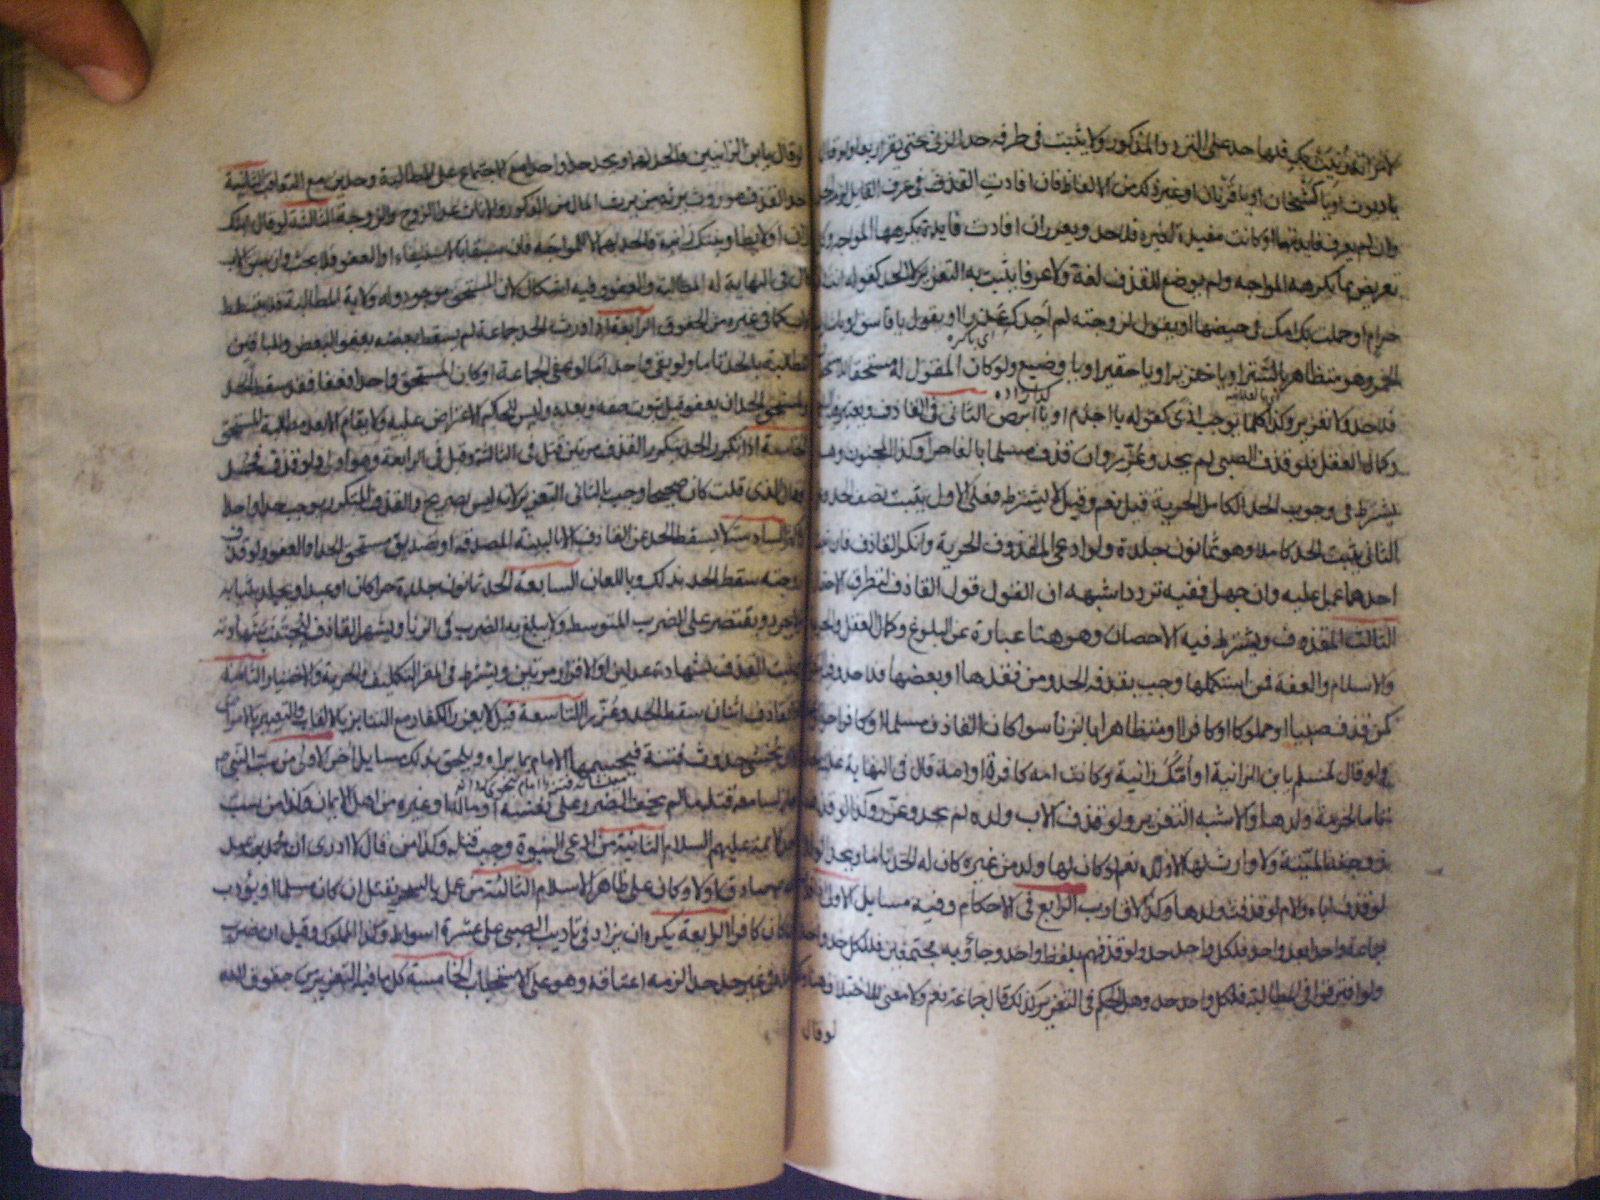 بكذا حد على التردد المذكور ولا يثبت في طرفه حد الزنى حتى يقر اربعا ولو قال
يا ديوث او يا كشخان او يا قرنان او غير ذلك من الالفاظ فان افادت القذف في عرف القايل لزمه الحد
وان لم يعرف فايدتها او كانت مفيدة لغيره فلا حد ويعزر ان افادت فايدة يكرهها المواجه وكل
تعريض بما يكرهه المواجه ولم يوضع للقذف لغة ولا عرفا يثبت به التعزير لا الحد كقوله انت ولد
حرام او حملت بك امك في حيضها او يقول لزوجته لم اجدك عذراء او يقول يا فاسق او يا شارب
الخمر وهو متظاهر بالستر او يا خنزير او يا حقير او يا وضيع ولو كان المقول له مستحقا للاستخفاف
فلا حد ولا تعزير وكذا كلما يوجب اذى كقوله يا اجذم او يا ابرص الثاني في القاذف ويعتبر فيه البلوغ
وكمال العقل فلو قذف الصبي لم يحد وعزر وان قذف مسلما بالغا حرا وكذا المجنون وهل
يشترط في وجوب الحد الكامل الحرية قيل نعم وقيل لا يشترط فعلى الاول يثبت نصف الحد وعلى
الثاني يثبت الحد كاملا وهو ثمانون جلدة ولو ادعى المقذوف الحرية وانكر القاذف فان ثبت
احدهما عمل عليه وان جهل ففيه تردد اشبهه ان القول قول القاذف لتطرق الاحتمال
الثالث المقذوف ويشترط فيه الاحصان وهو هنا عبارة عن البلوغ وكمال العقل والحرية
والاسلام والعفة فمن استكملها وجب بقذفه الحد ومن فقدها او بعضها فلا حد وفيه التعزير
كمن قذف صبيا او مملوكا او كافرا او متظاهرا بالزنا سواء كان القاذف مسلما او كافرا حرا
ولو قال لمسلم يا ابن الزانية او امك زانية وكانت امه كافرة او امة قال في النهاية عليه الحد
تاما لحرمة ولدها والاشبه التعزير ولو قذف الاب ولده لم يحد وعزر وكذا لو قذف
زوجته الميتة ولا وارث لها الا ولده نعم لو كان لها ولد من غيره كان له الحد تاما ويحد الولد
لو قذف اباه والام لو قذفت ولدها وكذا الاقارب الرابع في الاحكام وفيه مسايل الاولى اذا قذف
جماعة واحدا بعد واحد فلكل واحد حد ولو قذفهم بلفظ واحد وجاؤا به مجتمعين فللكل حد واحد
ولو افترقوا في المطالبة فلكل واحد حد وهل الحكم في التعزير كذلك قال جماعة نعم ولا معنى للاختلاف هنا وكذا
لو قال
لو قال يا ابن الزانيين فالحد لهما ويحد حدا واحدا مع الاجتماع على المطالبة وحدين مع التعاقب الثانية
حد القذف موروث يرثه من يرث المال من الذكور والاناث عدا الزوج والزوجة الثالثة لو قال ابنك
زان او لايط او بنتك زانية فالحد لهما لا للمواجه فان سبقا بالاستيفاء او العفو فلا بحث وان سبق الاب
قال في النهاية له المطالبة والعفو وفيه اشكال لان المستحق موجود وله ولاية المطالبة فلا يتسلط
الاب كما في غيره من الحقوق الرابعة اذا ورث الحد جماعة لم يسقط بعضه بعفو البعض وللباقين
المطالبة بالحد تاما ولو بقي واحد اما لو عفى الجماعة او كان المستحق واحدا فعفا فقد سقط الحد
ولمستحق الحد ان يعفو قبل ثبوت حقه وبعده وليس للحاكم الاعتراض عليه ولا يقام الا بعد مطالبة المستحق
الخامسة اذا تكرر الحد بتكرر القذف مرتين قتل في الثالثة وقيل في الرابعة وهو اولى ولو قذف فحد
فقال الذي قلت كان صحيحا وجب بالثاني التعزير لانه ليس بصريح والقذف المتكرر يوجب حدا واحدا
السادسة لا يسقط الحد عن القاذف الا بالبينة المصدقة او تصديق مستحق الحد او العفو ولو قذف
زوجته سقط الحد بذلك وباللعان السابعة الحد ثمانون جلدة حرا كان او عبدا ويجلد بثيابه
ولا يجرد ويقتصر على الضرب المتوسط ولا يبلغ به الضرب في الزنا ويشهر القاذف لتجتنب شهادته
ويثبت القذف بشهادة عدلين او الاقرار مرتين ويشترط في المقر التكليف والحرية والاختيار الثامنة
اذا تقاذف اثنان سقط الحد وعزرا التاسعة قيل لا يعزر الكفار مع التنابز بالالقاب والتعيير بالامراض
الا ان يخشى حدوث فتنة فيحسمها الامام بما يراه ويلحق بذلك مسايل اخر الاولى من سب النبي ص
جاز لسامعه قتله ما لم يخف الضرر على نفسه او ماله او غيره من اهل الايمان وكذا من سب
احد الائمة عليهم السلام الثانية من ادعى النبوة وجب قتله وكذا من قال لا ادري ان محمد بن عبد الله
صادق او لا وكان على ظاهر الاسلام الثالثة من عمل بالسحر يقتل ان كان مسلما او يؤدب
ان كان كافرا الرابعة يكره ان يزاد في تاديب الصبي على عشرة اسواط وكذا المملوك وقيل ان ضرب
عبده في غير حد حدا لزمه اعتاقه وهو على الاستحباب الخامسة كل ما فيه التعزير من حقوق الله